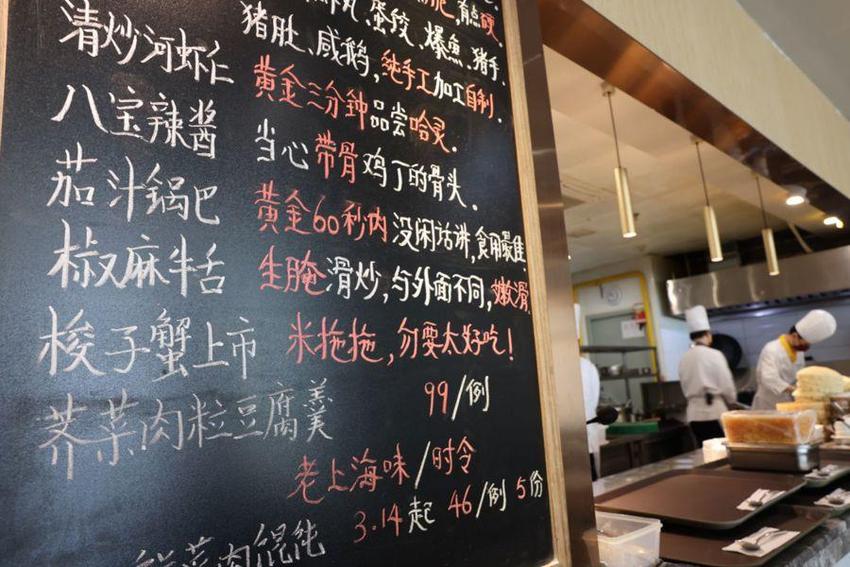 蛋饺、爆鱼、猪手、
猪肚、咸鹅,纯手工加工自制.
清炒河虾仁 黄金三分钟品尝哈灵.
八宝辣酱 当心带骨鸡丁的骨头.
茄汁锅巴 黄金60秒内没闲话讲,食用最佳.
椒麻牛舌 生腌滑炒,与外面不同,嫩滑.
梭子蟹上市 米拖拖,勿要太好吃!
99/例
荠菜肉粒豆腐羹
老上海味/时令
3.14起 46/例 5份
菜肉馄饨